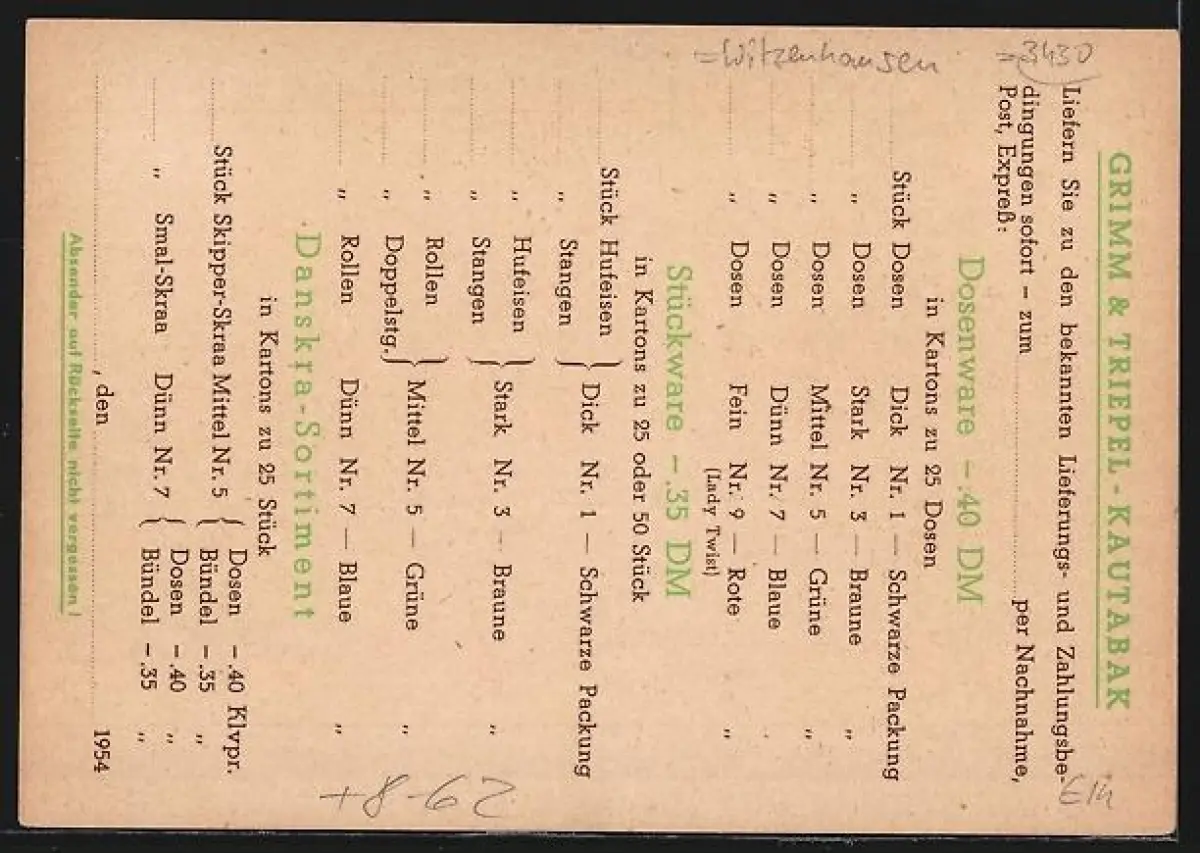 =Witzenhausen
=3430
GRIMM & TRIEPEL-KAUTABAK
Liefern Sie zu den bekannten Lieferungs- und Zahlungsbe-
dingungen sofort — zum .......... per Nachnahme,
Post, Expreß:
Dosenware —.40 DM
in Kartons zu 25 Dosen
..........Stück Dosen Dick Nr. 1 — Schwarze Packung
.......... „ Dosen Stark Nr. 3 — Braune „
.......... „ Dosen Mittel Nr. 5 — Grüne „
.......... „ Dosen Dünn Nr. 7 — Blaue „
.......... „ Dosen Fein Nr. 9 — Rote „
(Lady Twist)
Stückware —.35 DM
in Kartons zu 25 oder 50 Stück
..........Stück Hufeisen } Dick Nr. 1 — Schwarze Packung
„ Stangen }
.......... „ Hufeisen } Stark Nr. 3 — Braune „
.......... „ Stangen }
.......... „ Rollen } Mittel Nr. 5 — Grüne „
.......... „ Doppelstg. }
.......... „ Rollen Dünn Nr. 7 — Blaue „
Danskra-Sortiment
in Kartons zu 25 Stück
..........Stück Skipper-Skraa Mittel Nr. 5 { Dosen —.40 Klvpr.
{ Bündel —.35 „
.......... „ Smal-Skraa Dünn Nr. 7 { Dosen —.40 „
{ Bündel —.35 „
.........., den .......... 1954
Absender auf Rückseite nicht vergessen!